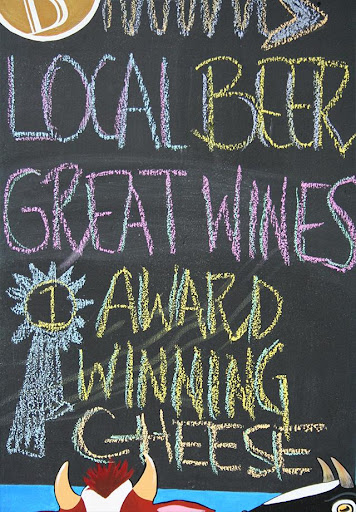 B
LOCAL BEER
GREAT WINES
1 AWARD
WINNING
CHEESE